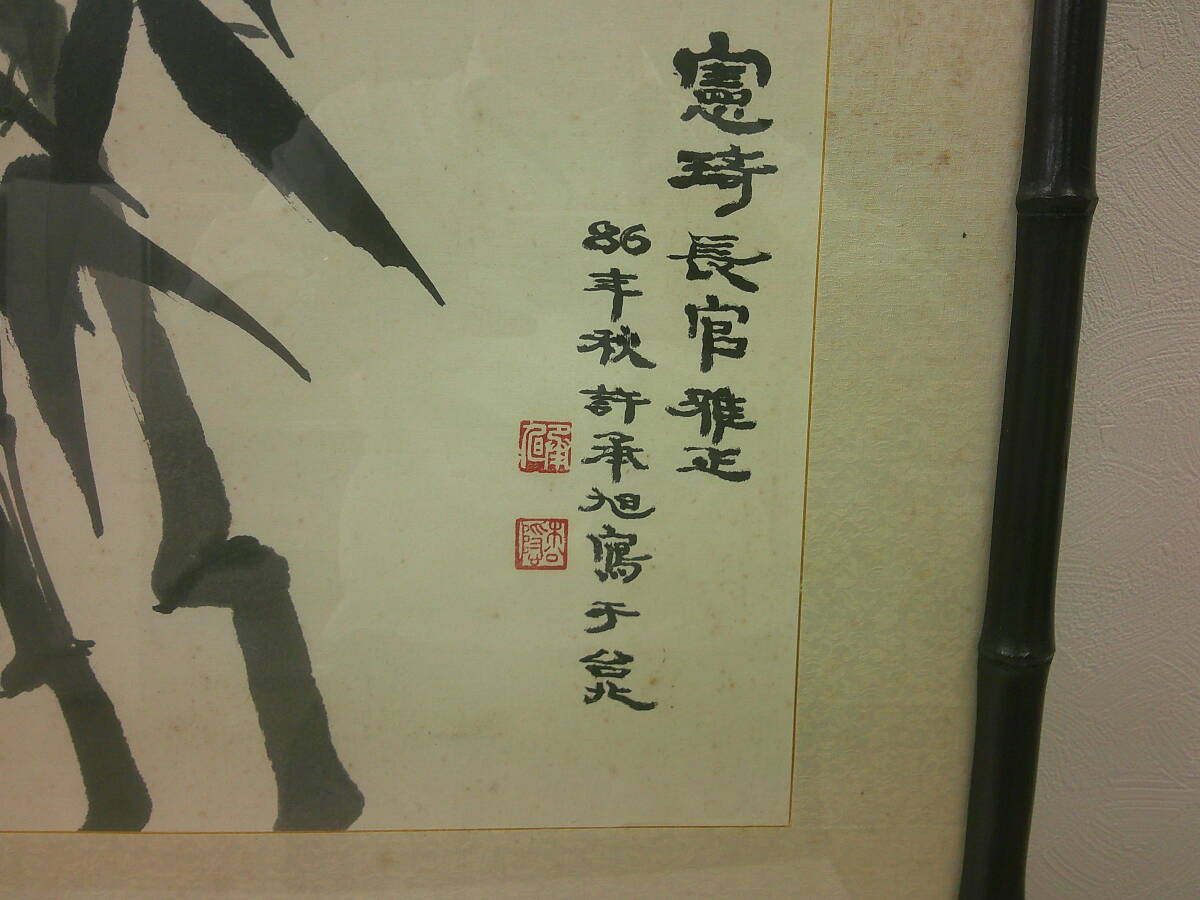 憲琦長官雅正
86年秋許承旭寫于台北